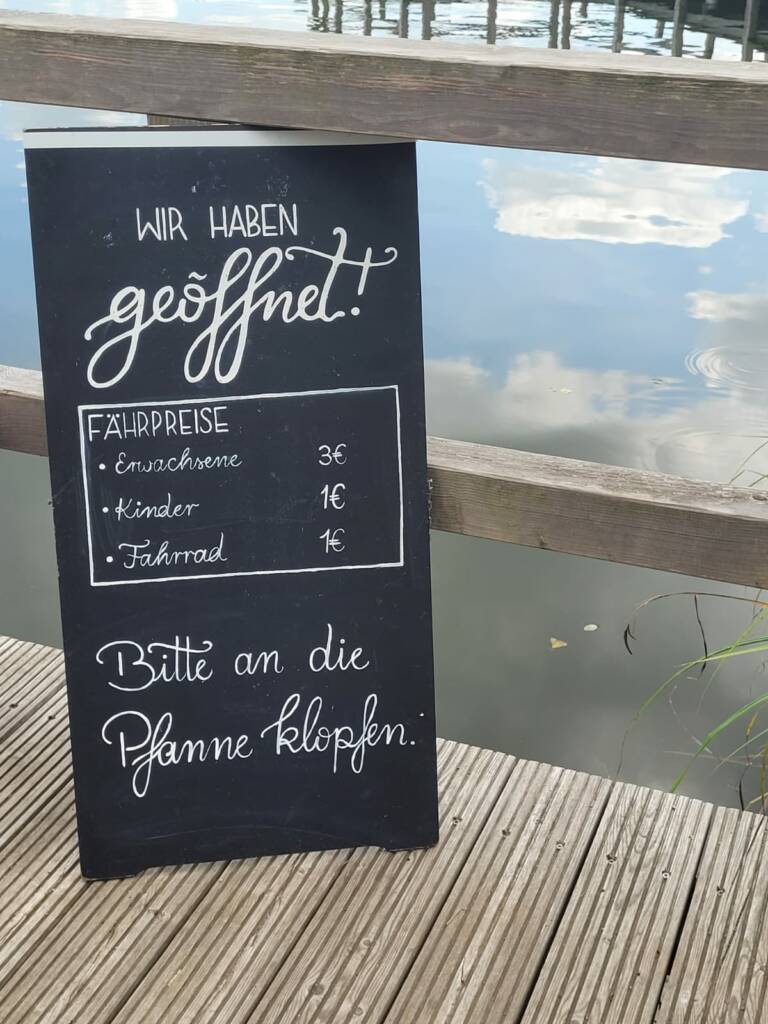 WIR HABEN
geöffnet!
FÄHRPREISE
• Erwachsene 3€
• Kinder 1€
• Fahrrad 1€
Bitte an die
Pfanne klopfen.